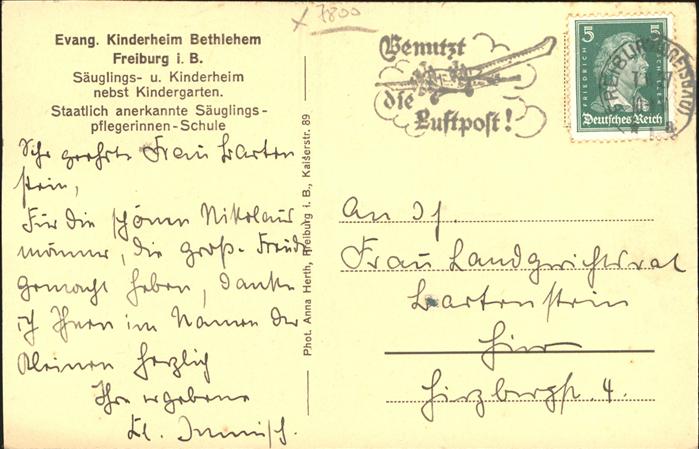 7800
Evang. Kinderheim Bethlehem
Freiburg i. B.
Säuglings- u. Kinderheim
nebst Kindergarten.
Staatlich anerkannte Säuglings-
pflegerinnen-Schule
Sehr geehrte Frau Barten
stein,
Für die schönen Nikolaus
männer, die große Freude
gemacht haben, danke
ich Ihnen im Namen der
Kleinen herzlich
Ihre ergebene
Phot. Anna Herth, Freiburg i. B., Kaiserstr. 89
Benutzt
die
Luftpost!
5 5
FRIEDRICH
Deutsches Reich
FREIBURG (BREISGAU)
An
Frau Landgerichtsrat
Bartenstein
Hier
Hirzbergstr. 4.